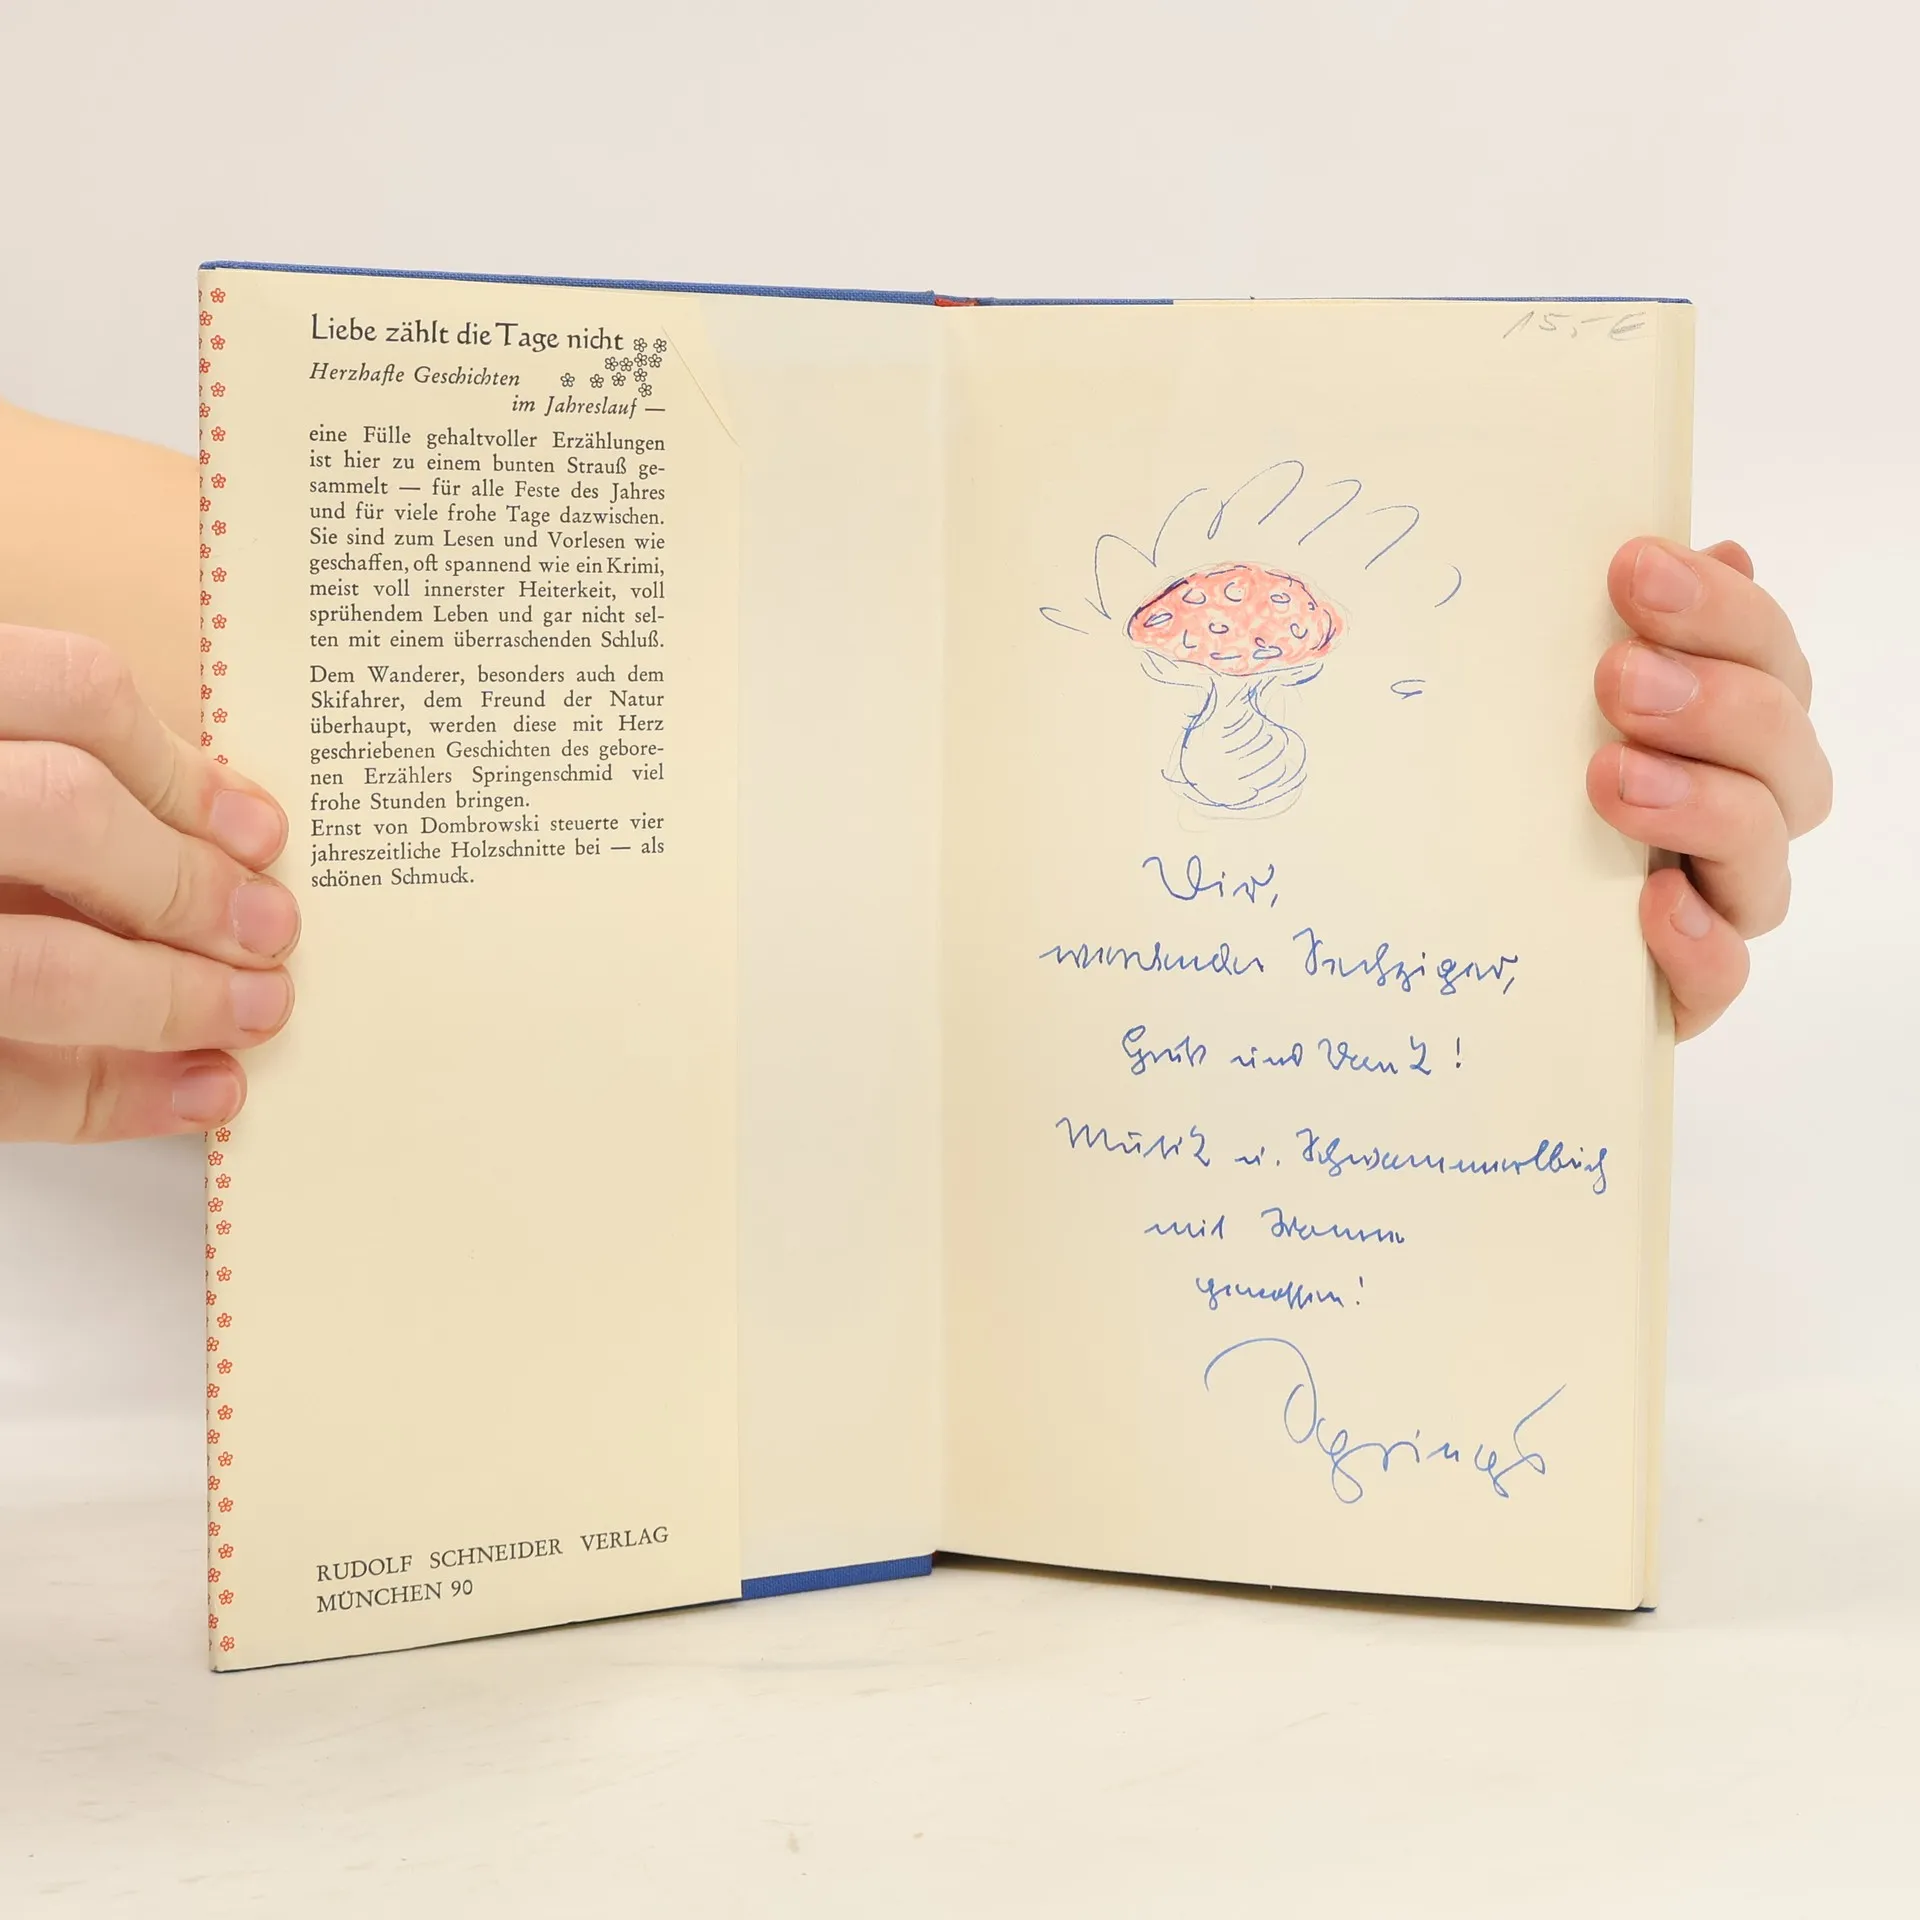 Liebe zählt die Tage nicht
Herzhafte Geschichten
im Jahreslauf —
eine Fülle gehaltvoller Erzählungen
ist hier zu einem bunten Strauß ge-
sammelt — für alle Feste des Jahres
und für viele frohe Tage dazwischen.
Sie sind zum Lesen und Vorlesen wie
geschaffen, oft spannend wie ein Krimi,
meist voll innerster Heiterkeit, voll
sprühendem Leben und gar nicht sel-
ten mit einem überraschenden Schluß.
Dem Wanderer, besonders auch dem
Skifahrer, dem Freund der Natur
überhaupt, werden diese mit Herz
geschriebenen Geschichten des gebore-
nen Erzählers Springenschmid viel
frohe Stunden bringen.
Ernst von Dombrowski steuerte vier
jahreszeitliche Holzschnitte bei — als
schönen Schmuck.
RUDOLF SCHNEIDER VERLAG
MÜNCHEN 90
15,- €
Dir,
Sechziger,
Gruß und Dank!
Musik u. Schwammerlbuch
mit
genossen!